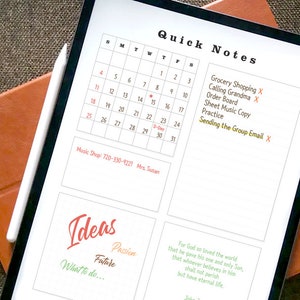 Quick Notes
S M T W T F S
1 2 3
4 5 6 7 8 9 10
11 12 13 14 15 16 17
18 19 20 21 22 23 24
25 26 27 28 29 30 31
Grocery Shopping X
Calling Grandma X
Order Board
Sheet Music Copy
Practice
Sending the Group Email X
Music Shop: 720-330-9221 Mrs. Susan
Ideas
Passion
Future
What to do...
For God so loved the world
that he gave his one and only Son,
that whoever believes in him
shall not perish
but have eternal life.